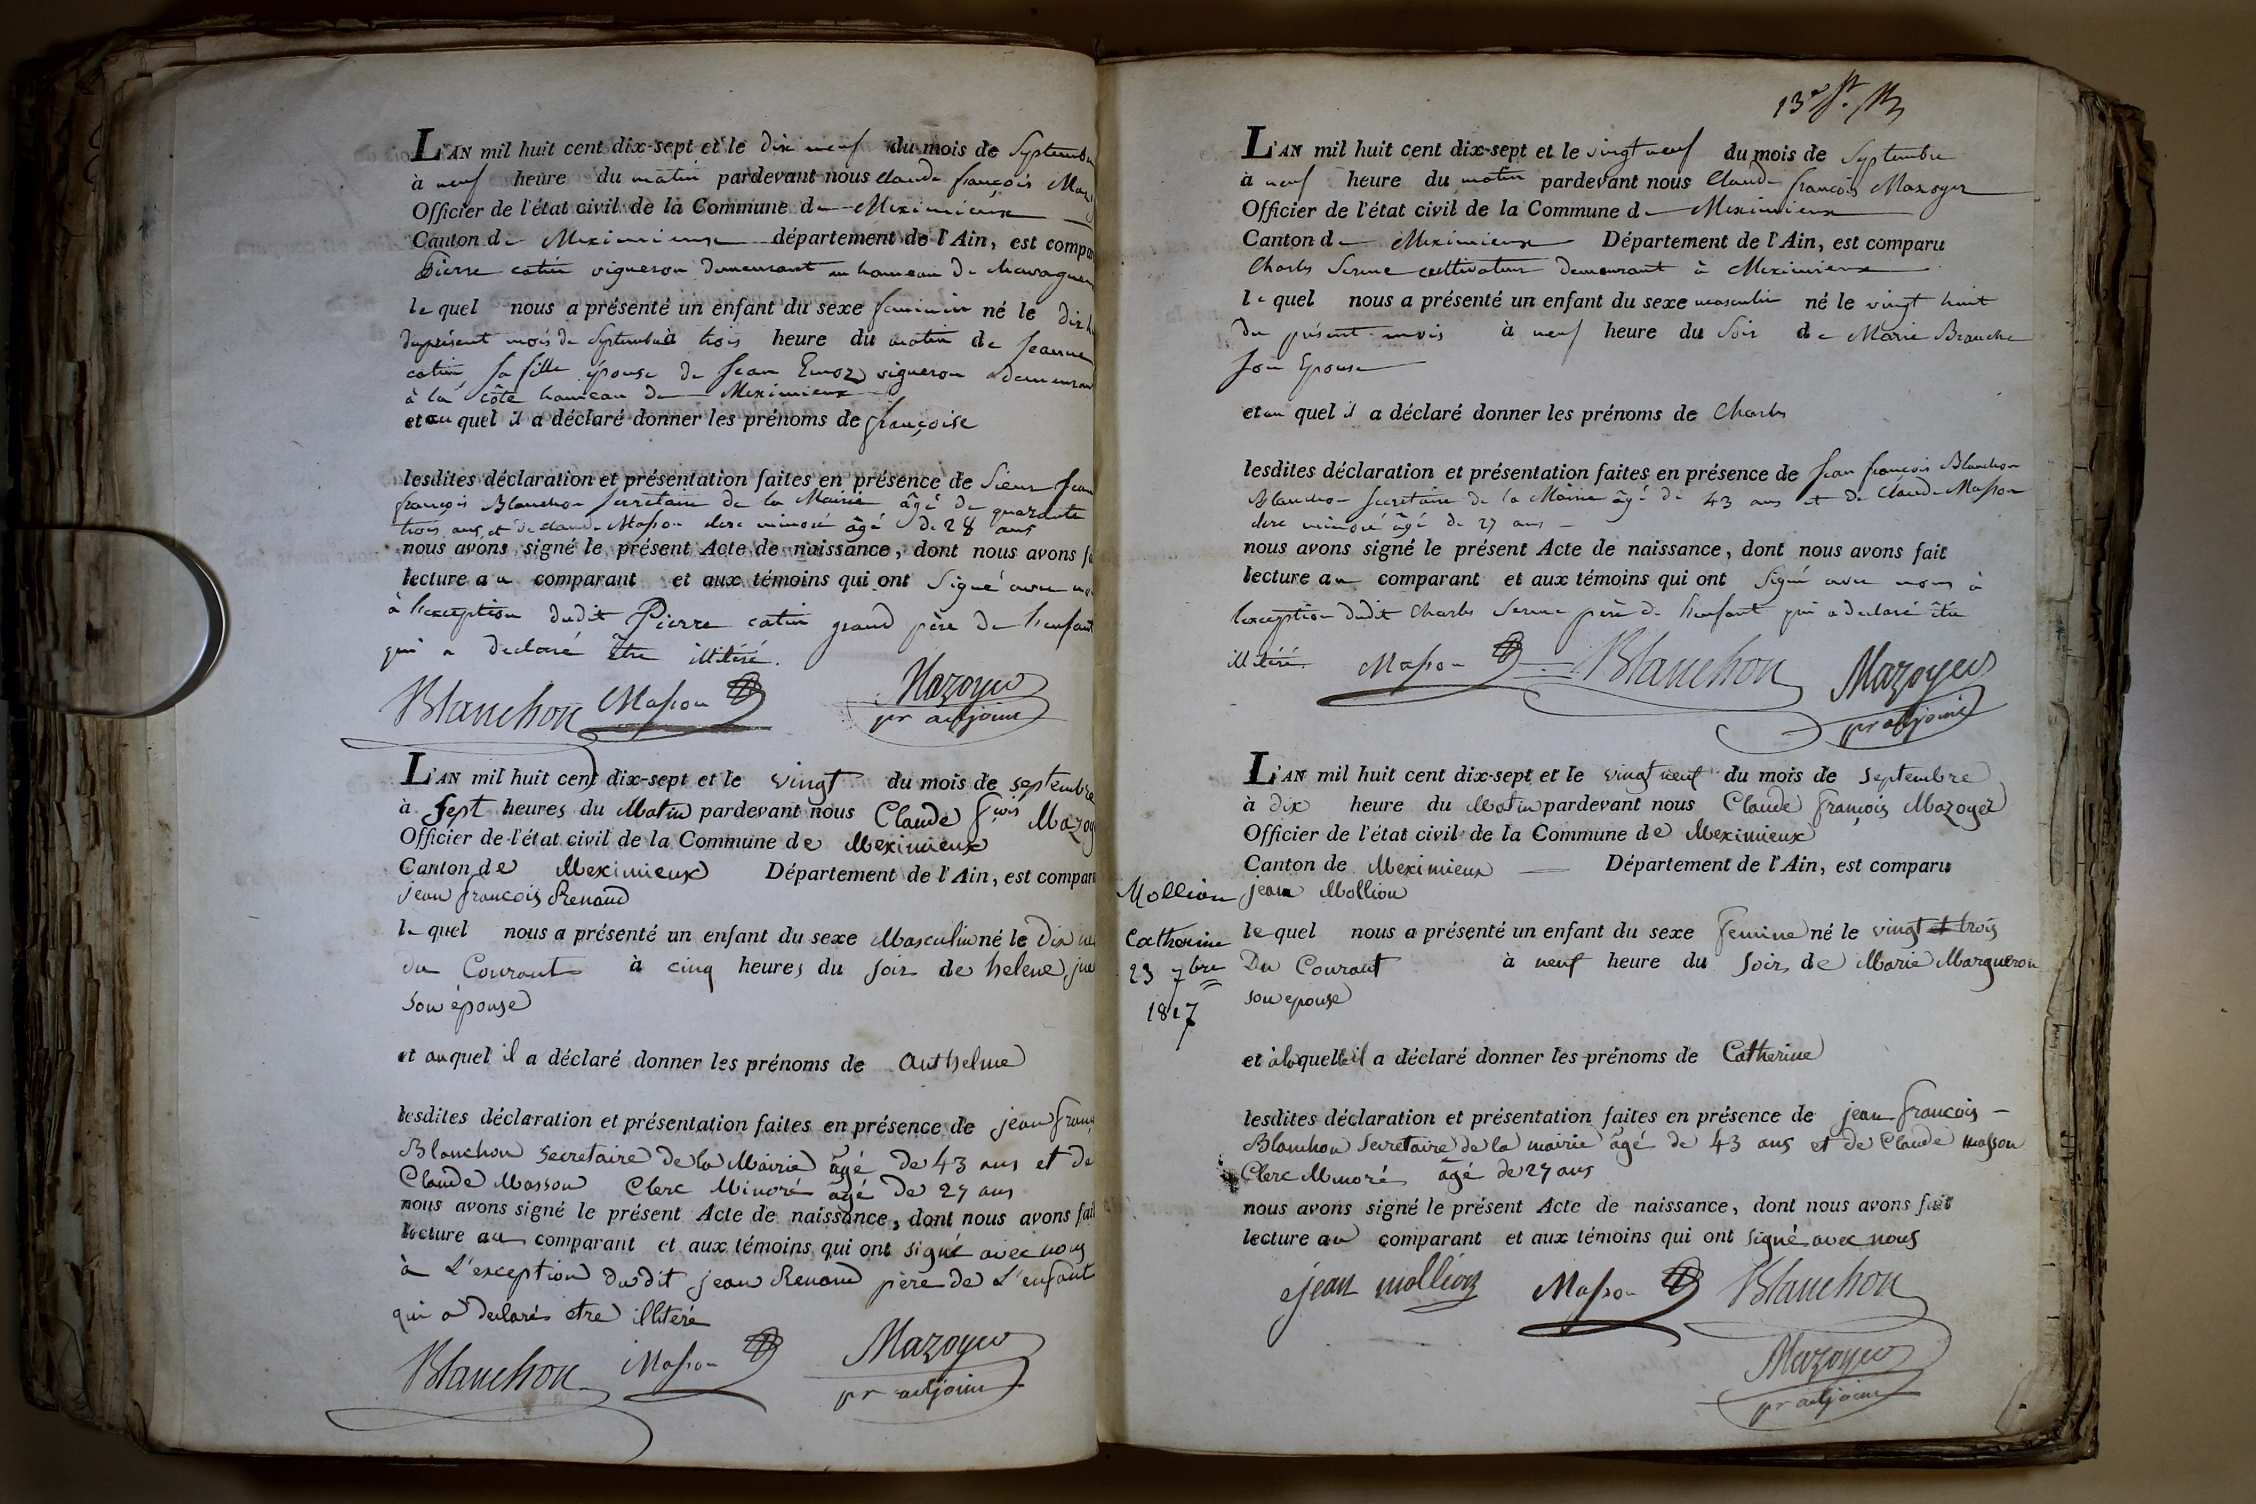 L'AN mil huit cent dix-sept et le dix neuf du mois de Septembre
à neuf heure du matin pardevant nous Claude françois Maz
Officier de l'état civil de la Commune de Meximieux
Canton de Meximieux département de l'Ain, est compar
Pierre catin vigneron demeurant au hameau de
le quel nous a présenté un enfant du sexe feminin né le dix
du présent mois de Septembre à trois heure du matin de Jeanne
catin sa fille épouse de Jean vigneron demeurant
à la côte hameau de Meximieux
et au quel il a déclaré donner les prénoms de françoise
lesdites déclaration et présentation faites en présence de Sieur Jean
françois Blanchon Secretaire de la Mairie âgé de quarante
trois ans et de claude Masson clerc minoré âgé de 28 ans
nous avons signé le présent Acte de naissance, dont nous avons f
lecture au comparant et aux témoins qui ont Signé avec nous
à l'exception dudit Pierre catin grand père de l'enfant
qui a declaré être illitéré.
Blanchon Masson Mazoyer
pr adjoint
L'AN mil huit cent dix-sept et le vingt du mois de septembre
à Sept heures du Matin pardevant nous Claude fçois Mazoy
Officier de l'état civil de la Commune de Meximieux
Canton de Meximieux Département de l'Ain, est compar
jean françois Renaud
le quel nous a présenté un enfant du sexe Masculin né le Dix
du Courant à cinq heures du soir de helene
son épouse
et auquel il a déclaré donner les prénoms de Anthelme
lesdites déclaration et présentation faites en présence de jean franç
Blanchon secretaire de la Mairie âgé de 43 ans et de
Claude Masson Clerc Minoré âgé de 27 ans
nous avons signé le présent Acte de naissance, dont nous avons fait
lecture au comparant et aux témoins qui ont signé avec nous
à L'exception du dit jean Renaud père de L'enfant
qui a declarés etre illiteré
Blanchon Masson Mazoyer
pr adjoint
L'AN mil huit cent dix-sept et le vingt neuf du mois de Septembre
à neuf heure du matin pardevant nous Claude françois Mazoyer
Officier de l'état civil de la Commune de Meximieux
Canton de Meximieux Département de l'Ain, est comparu
Charles cultivateur demeurant à Meximieux
le quel nous a présenté un enfant du sexe masculin né le vingt huit
du présent mois à neuf heure du Soir de Marie Branche
son Epouse
et au quel il a déclaré donner les prénoms de Charles
lesdites déclaration et présentation faites en présence de Jean françois Blanchon
Blanchon Secretaire de la Mairie âgé de 43 ans et de Claude Masson
clerc minoré âgé de 27 ans
nous avons signé le présent Acte de naissance, dont nous avons fait
lecture au comparant et aux témoins qui ont signé avec nous à
l'exception dudit Charles père de l'enfant qui a declaré être
illitéré.
Masson Blanchon Mazoyer
pr adjoint
L'AN mil huit cent dix-sept et le vingt neuf du mois de septembre
à dix heure du Matin pardevant nous Claude françois Mazoyer
Officier de l'état civil de la Commune de Meximieux
Canton de Meximieux Département de l'Ain, est comparu
Mollion
Catherine
23 7bre
1817
jean Mollion
le quel nous a présenté un enfant du sexe femine né le vingt et trois
Du Courant à neuf heure du soir de Marie Margueron
son epouse
et à laquelle il a déclaré donner les prénoms de Catherine
lesdites déclaration et présentation faites en présence de jean françois
Blanchon Secretaire de la mairie âgé de 43 ans et de Claude masson
Clerc Minoré âgé de 27 ans
nous avons signé le présent Acte de naissance, dont nous avons fait
lecture au comparant et aux témoins qui ont signé avec nous
jean mollion Masson Blanchon
Mazoyer
pr adjoint